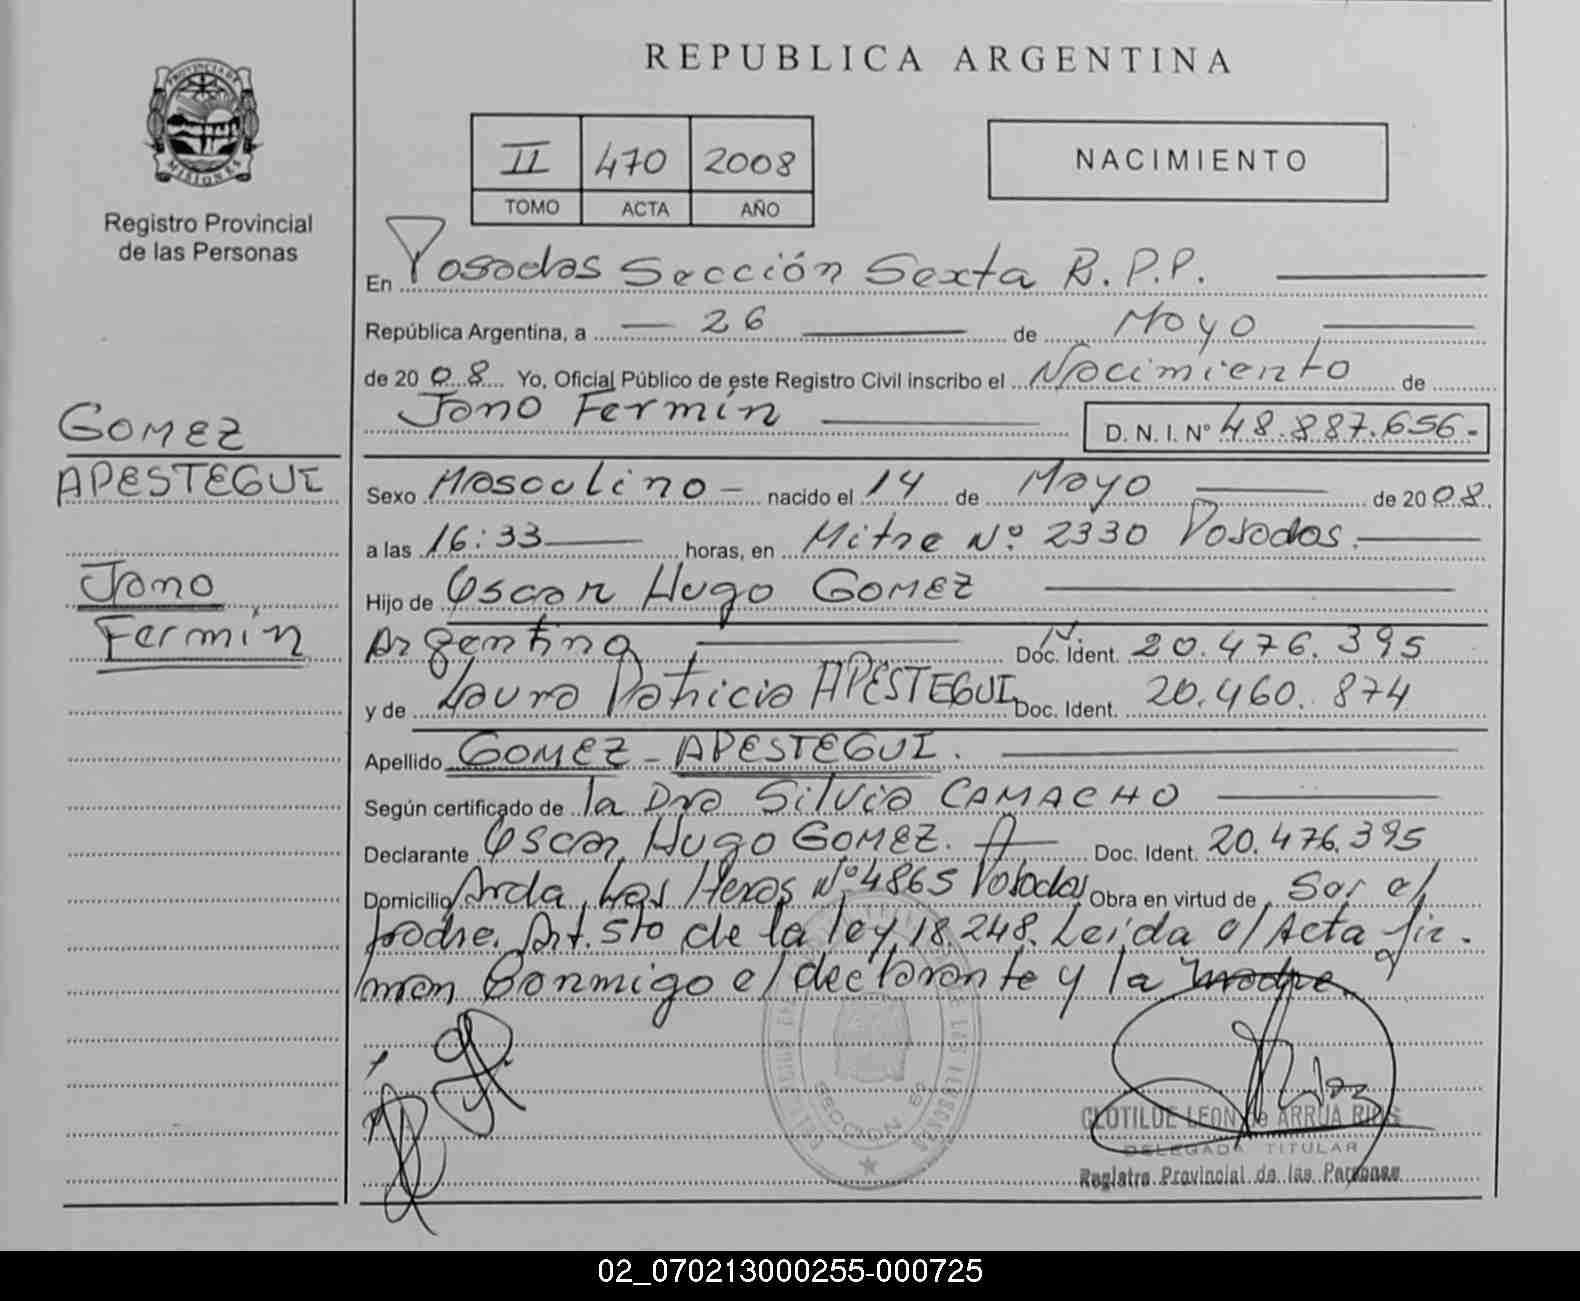 REPUBLICA ARGENTINA
PROVINCIA DE
MISIONES
Registro Provincial
de las Personas
II 470 2008
TOMO ACTA AÑO
NACIMIENTO
En Posadas Sección Sexta R.P.P.
República Argentina, a 26 de Mayo
de 2008 Yo, Oficial Público de este Registro Civil inscribo el Nacimiento de
Jano Fermín
D. N. I. Nº 48.887.656.-
GOMEZ
APESTEGUI
Jano
Fermín
Sexo Masculino - nacido el 14 de Mayo de 2008.
a las 16:33 horas, en Mitre Nº 2330 Posadas.
Hijo de Oscar Hugo GOMEZ
Argentino Doc. Ident. 20.476.395
y de Laura Patricia APESTEGUI Doc. Ident. 20.460.874
Apellido GOMEZ - APESTEGUI.
Según certificado de la Dra Silvia CAMACHO
Declarante Oscar Hugo GOMEZ. A Doc. Ident. 20.476.395
Domicilio Avda. Las Heras Nº 4865 Posadas Obra en virtud de Ser el
padre. Art. 5to de la ley 18.248. Leida el Acta fir-
man Conmigo el declarante y la madre.
SECCION 6ª
CLOTILDE LEON de ARRUA RIOS
DELEGADA TITULAR
Registro Provincial de las Personas
02_070213000255-000725